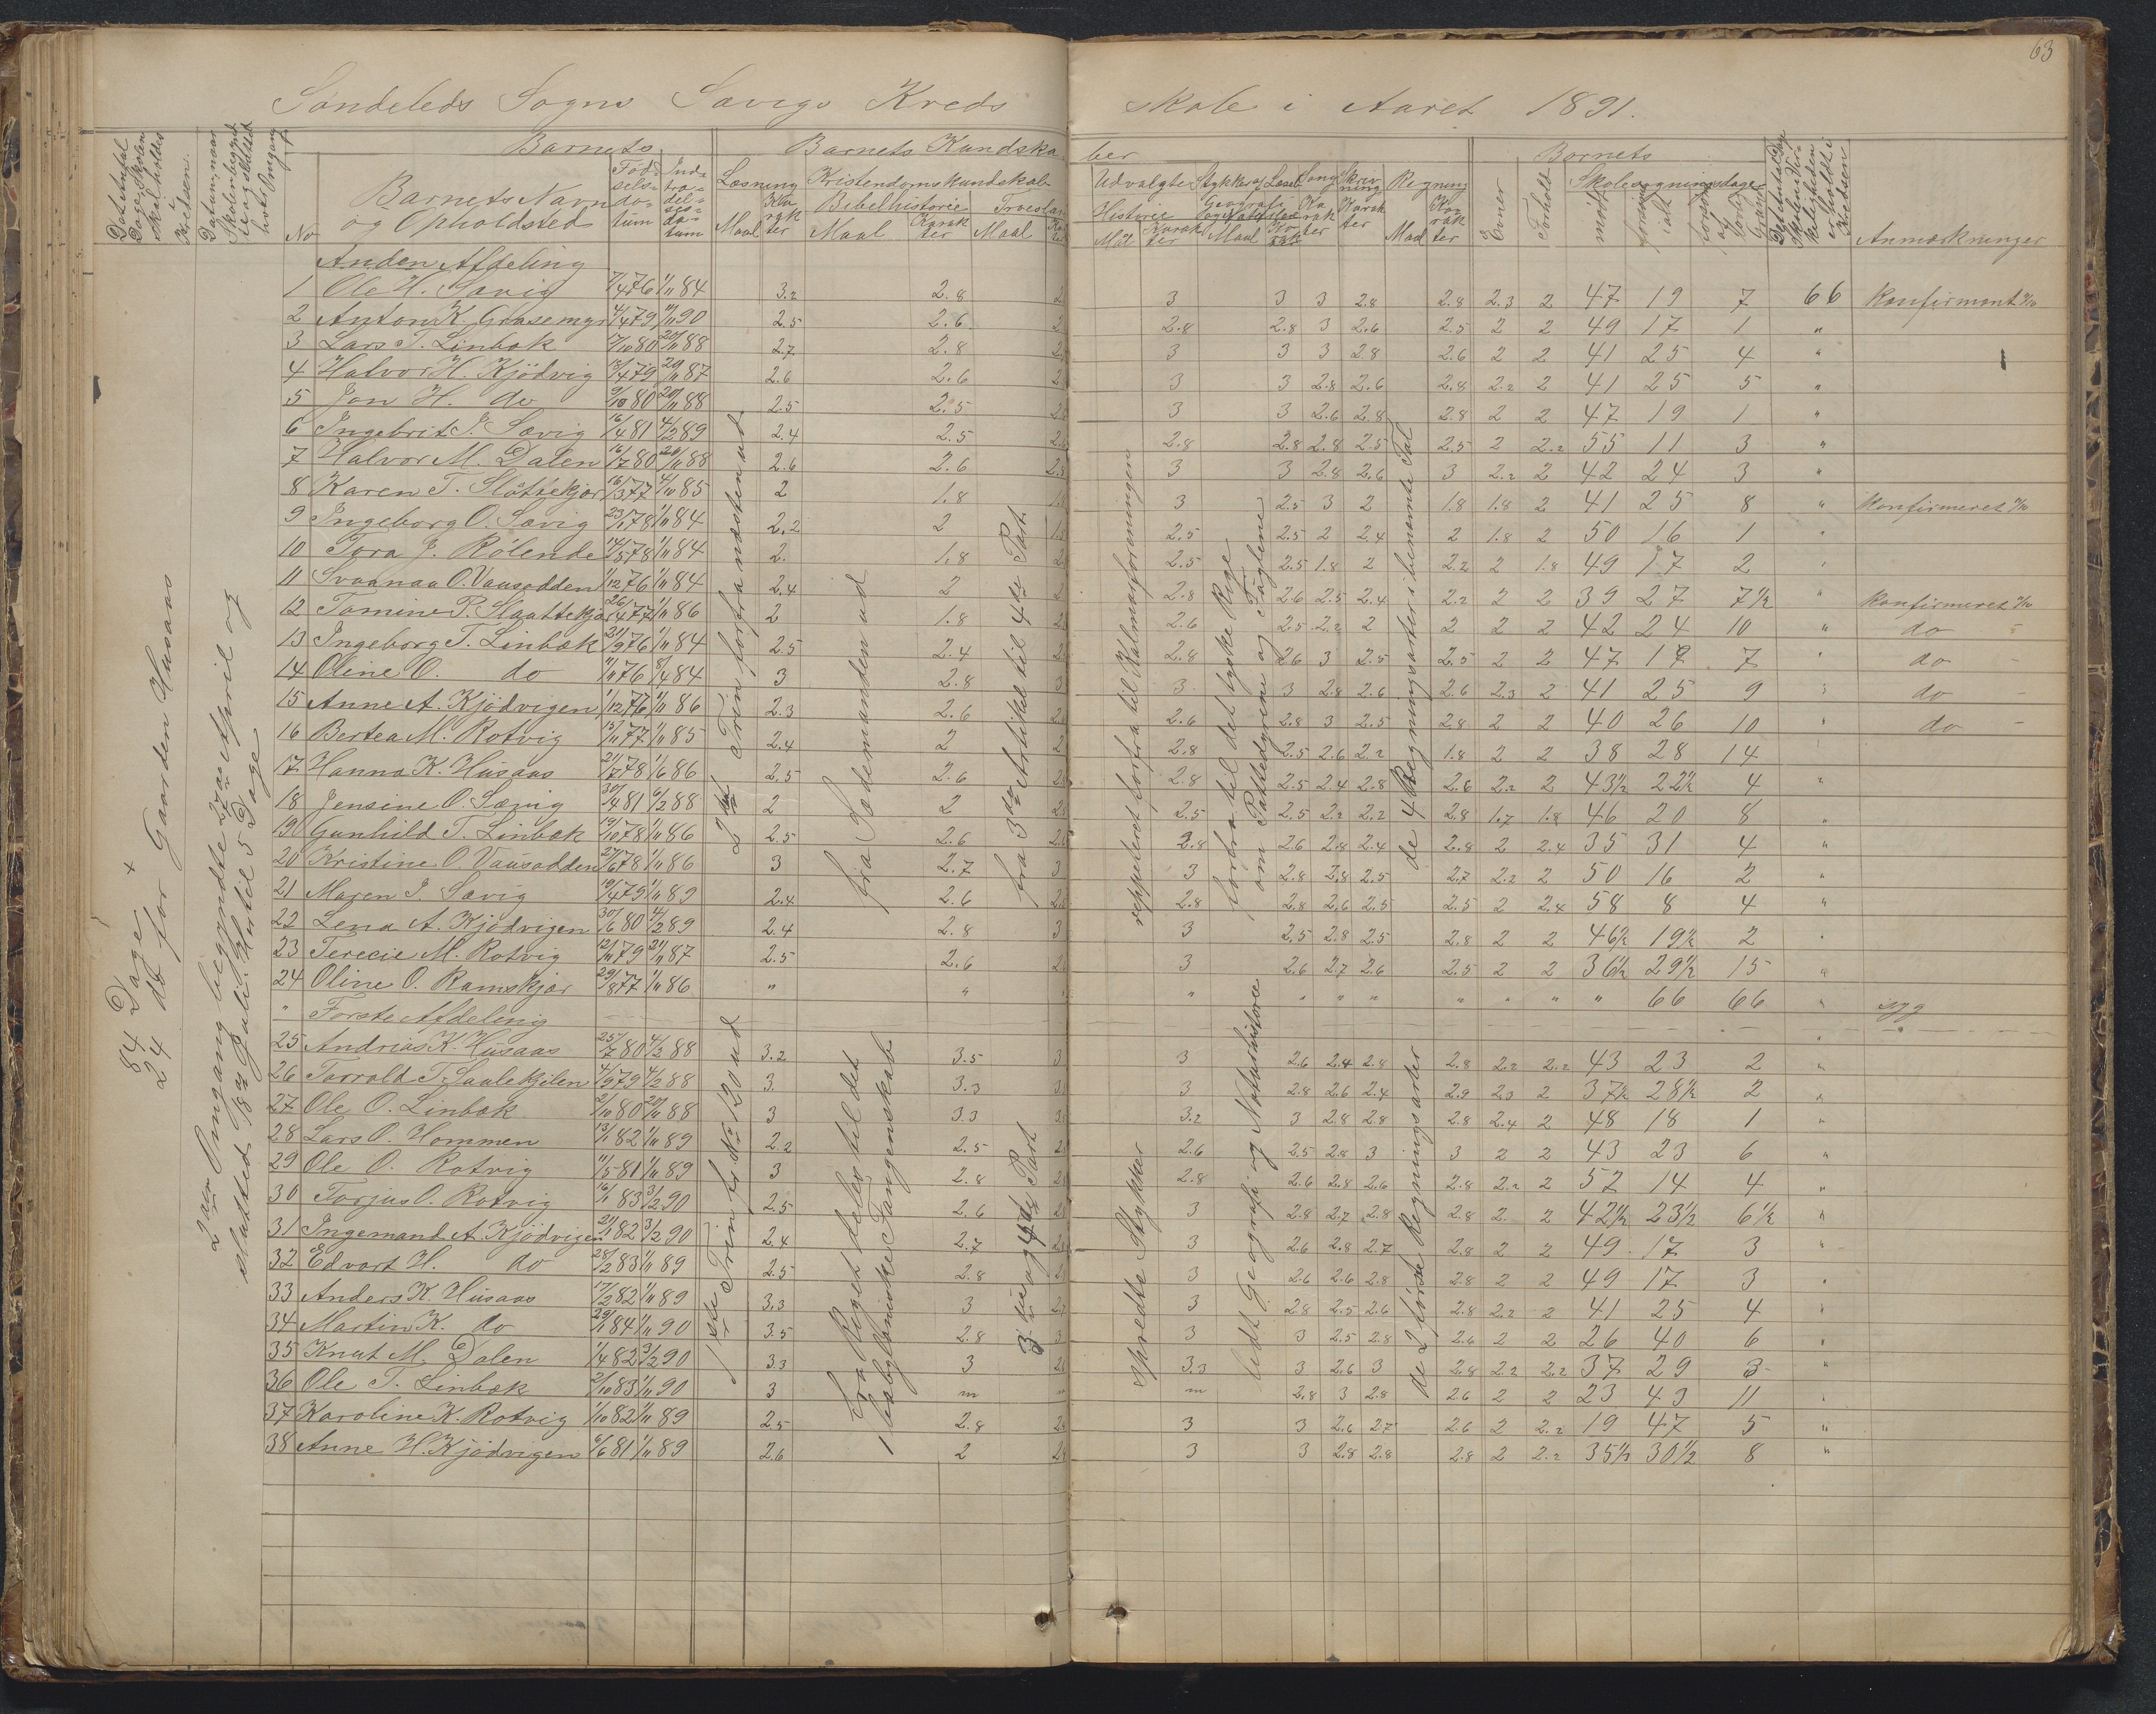 63
Søndeleds Sogns Sævigs Kreds Skole i Aaret 1891.
Det Antal Dage, Skolen skal holdes i Kredsen.
Datum, naar Skolen begyndt og sluttet hver Omgang
No
Barnets
Barnets Navn og Opholdsted
Fødselsdatum
Indtrædelsesdatum
Barnets Kundskaber
Læsning
Maal
Karakter
Kristendomskundskab
Bibelhistorie
Maal
Karakter
Troeslære
Maal
Udvalgte Stykker af Læseb.
Historie
Mål
Karakter
Geografi og Naturhist.
Maal
Sang
Karakter
Skrivning
Karakter
Regning
Maal
Karakter
Barnets
Evner
Forhold
Skolesøgningsdage
mødt
forsømt ialt
Anmærkninger
84 Dage +
24 do for Gaarden Husaas
2den Omgang begyndte 27de April og
slutted 18de Juli. Hertil 5 Dage
Anden Afdeling
1 Ole H. Sævig 7/4 76 1/11 84 3.2 2.8 3 3 3 2.8 2.8 2.3 2 47 19 7 66 Konfirmant
2 Anton K. Grasemyr 4/4 79 11/11 90 2.5 2.6 2.8 2.8 3 2.6 2.5 2 2 49 17 1 "
3 Lars T. Linbæk 17/10 80 20/11 88 2.7 2.8 3 3 3 2.8 2.6 2 2 41 25 4 "
4 Halvor H. Kjødvig 13/4 79 20/11 87 2.6 2.6 3 3 2.8 2.6 2.8 2.2 2 41 25 5 "
5 Jon H. do 9/10 80 20/11 88 2.5 2.5 3 3 2.6 2.8 2.8 2 2 47 19 1 "
6 Ingebrit J. Sævig 16/4 81 4/2 89 2.4 2.5 2.8 2.8 2.8 2.5 2.5 2 2.2 55 11 3 "
7 Halvor M. Dalen 16/7 80 20/11 88 2.6 2.6 3 3 2.8 2.6 3 2.2 2 42 24 3 "
8 Karen T. Slåttekjær 16/3 77 4/10 85 2 1.8 3 2.5 3 2 1.8 1.8 2 41 25 8 " Konfirmeret
9 Ingeborg O. Sævig 23/1 78 1/11 84 2.2 2 2.5 2.5 2 2.4 2 1.8 2 50 16 1 "
10 Tora J. Rølende 14/5 78 1/11 84 2. 1.8 2.5 2.5 1.8 2 2.2 2 1.8 49 17 2 "
11 Svanaa O. Vausodden 1/12 76 1/11 84 2.4 2 2.8 2.6 2.5 2.4 2.2 2 2 39 27 7½ " Konfirmeret
12 Tomine P. Slaattekjær 26/4 77 1/11 86 2 1.8 2.6 2.5 2.2 2 2 2 2 42 24 10 " do
13 Ingeborg T. Linbæk 21/9 76 1/11 84 2.5 2.4 2.8 2.6 3 2.5 2.5 2 2 47 19 7 " do
14 Oline O. do 11/11 76 8/4 84 3 2.8 3 3 2.8 2.6 2.6 2.3 2 41 25 9 do
15 Anne A. Kjødvigen 1/12 76 1/11 86 2.3 2.6 2.6 2.8 3 2.5 2.8 2 2 40 26 10 " do
16 Bertea M. Rotvig 13/11 77 1/11 85 2.4 2 2.8 2.5 2.6 2.2 1.8 2 2 38 28 14
17 Hanna K. Husaas 21/7 78 1/6 86 2.5 2.6 2.8 2.5 2.4 2.8 2.6 2.2 2 43½ 22½ 4 "
18 Jensine O. Sævig 30/4 81 6/2 88 2 2 2.5 2.5 2.2 2.2 2.8 1.7 1.8 46 20 8 "
19 Gunhild T. Linbæk 19/10 78 1/11 86 2.5 2.6 2.8 2.6 2.8 2.4 2.8 2 2.4 35 31 4 "
20 Kristine O. Vausodden 27/6 78 1/11 86 3 2.7 3 2.8 2.8 2.5 2.7 2.2 2 50 16 2 "
21 Maren J. Sævig 19/4 79 1/11 89 2.4 2.6 2.8 2.8 2.6 2.5 2.5 2 2.4 58 8 4 "
22 Lena A. Kjødvigen 30/6 80 4/2 89 2.4 2.8 3 2.5 2.8 2.5 2.8 2 2 46½ 19½ 2 "
23 Terecie M. Rotvig 12/11 79 21/11 87 2.5 2.6 3 2.6 2.7 2.6 2.5 2 2 36½ 29½ 15 "
24 Oline O. Ramskjær 29/8 77 1/11 86 " " " " " " " " " " 66 66 " syg
" Første Afdeling
25 Andrias K. Husaas 25/7 80 4/2 88 3.2 3.5 3 2.6 2.4 2.8 2.8 2.2 2.2 43 23 2 "
26 Torrald T. Saulekjilen 4/9 79 4/2 88 3. 3.3 3 2.8 2.6 2.4 2.9 2.3 2 37½ 28½ 2 "
27 Ole O. Linbæk 2/10 80 20/11 88 3 3.3 3.2 3 2.8 2.8 2.8 2.4 2 48 18 1 "
28 Lars O. Hommen 13/1 82 1/11 89 2.2 2.5 2.6 2.5 2.8 3 3 2 2 43 23 6 "
29 Ole O. Rotvig 11/5 81 1/11 89 3 2.8 2.8 2.6 2.8 2.6 2.8 2.2 2 52 14 4 "
30 Torjus O. Rotvig 16/1 83 3/2 90 2.5 2.6 3 2.8 2.7 2.8 2.8 2. 2 42½ 23½ 6½ "
31 Ingemand A. Kjødvigen 21/1 82 3/2 90 2.4 2.7 3 2.6 2.8 2.7 2.8 2 2 49 17 3 "
32 Edvart H. do 28/2 83 1/11 89 2.5 2.8 3 2.6 2.6 2.8 2.8 2 2 49 17 3 "
33 Anders K. Husaas 17/2 82 1/11 89 3.3 3 3 2.8 2.5 2.6 2.8 2.2 2 41 25 4 "
34 Martin K. do 29/1 84 1/11 90 3.5 2.8 3 3 2.5 2.8 2.6 2 2 26 40 6 "
35 Knut M. Dalen 1/4 82 3/2 90 3.3 3 3.3 3 2.6 3 2.8 2.2 2.2 37 29 3 "
36 Ole T. Linbæk 2/10 83 1/11 90 3 m m 2.8 3 2.8 2.6 2 2 23 43 11 "
37 Karoline K. Rotvig 1/10 82 1/11 89 2.5 2.8 3 3 2.6 2.7 2.6 2 2.2 19 47 5 "
38 Anne H. Kjødvigen 6/6 81 1/11 89 2.6 2 3 3 2.8 2.8 2.8 2 2.2 35½ 30½ 8 "
2det Trin forfra næsten ud
fra Sædemanden ud
fra 3die Artikel til 4de Part.
reppeteret forfra til Kalmarforeningen
forfra til det tyske Rige
om Pattedyrene og Fuglene
de 4 Regningsarter i benævnte Tal
1ste Trin fr No 120 ud
fra Riget deles til det
babyloniske Fangenskab
3die og 4de Part
spredte Stykker
lidt Geografi og Naturhistorie
de 2 første Regningsarter